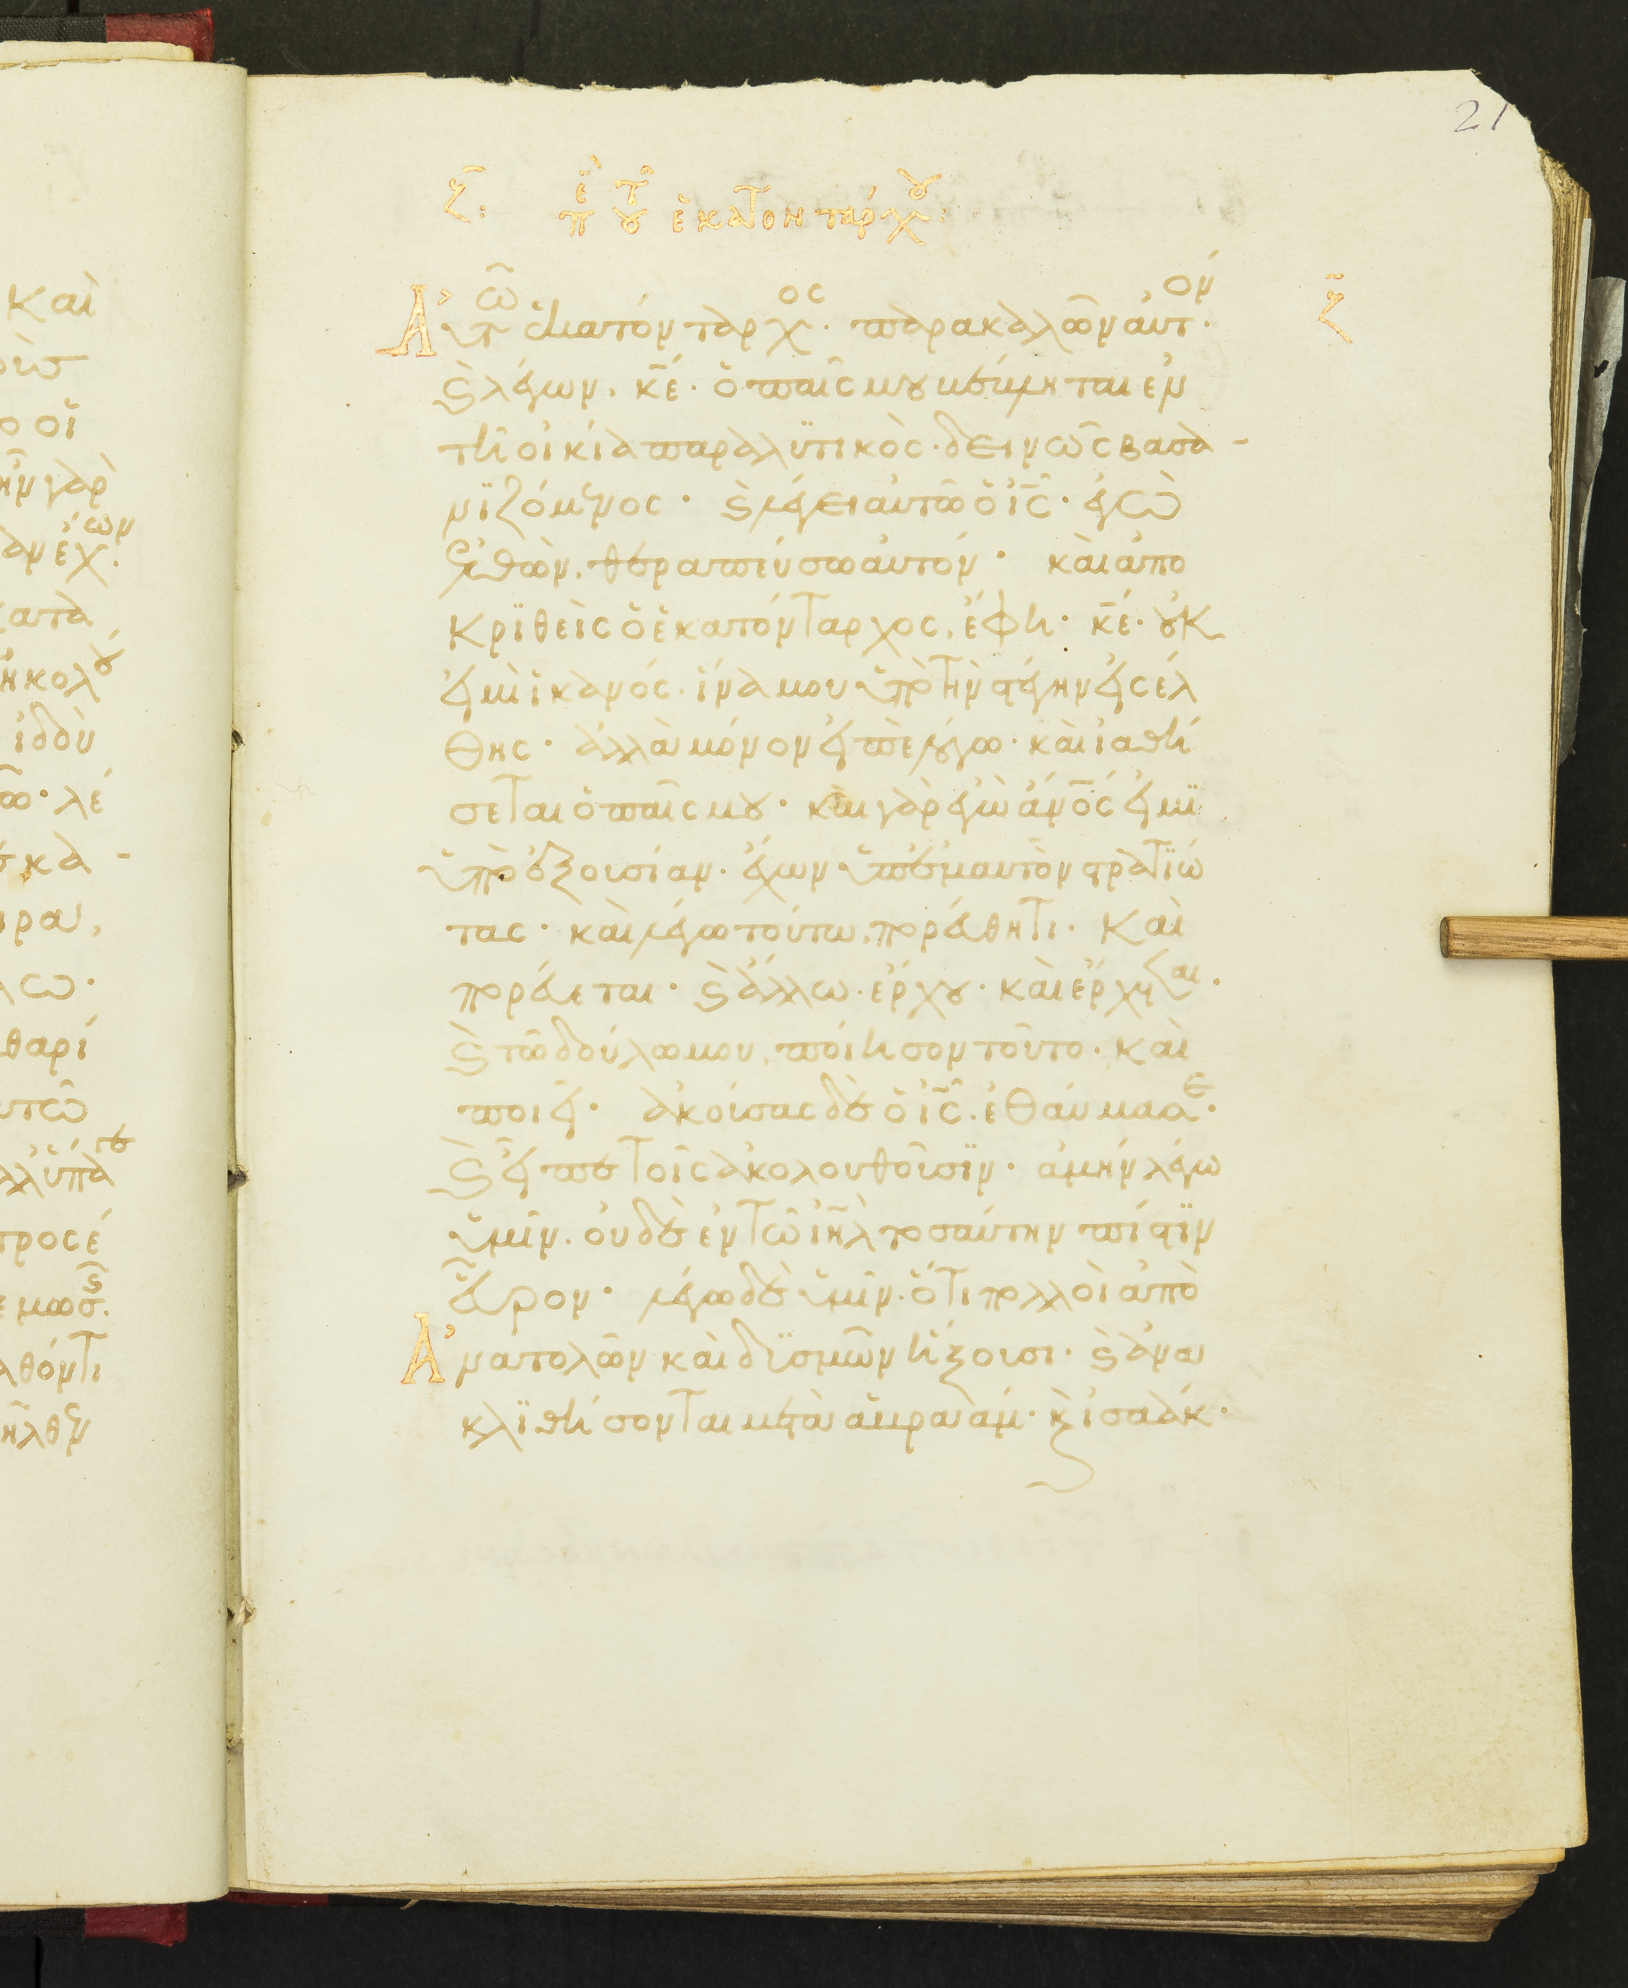 21
ζ: περὶ τοῦ ἑκατοντάρχου:
Αὐτῶ ἑκατόνταρχος. παρακαλῶν αὐτον.
ϗ λέγων. κε. ὁ παῖς μου βέβληται ἐν
τῆ οἰκία παραλϋτικὸς. δεινῶς βασα-
νϊζόμενος. ϗ λέγει αὐτῶ ὁ ις. ἐγὼ
ἐλθὼν, θεραπεύσω αὐτόν. καὶ ἀπο
κρϊθεὶς ὁ ἑκατόνταρχος, ἔφη. κε. οὐκ
εἰμὶ ἱκανός. ἵνα μου ὑπὸ τὴν στέγην εἰσέλ
θης. ἀλλὰ μόνον εἰπὲ λόγω. καὶ ἰαθή
σεται ὁ παῖς μου. καὶ γὰρ ἐγὼ ανος εἰμϊ
ὑπὸ ἐξουσίαν. ἔχων ὑπ' ἐμαυτὸν στρατϊώ
τας. καὶ λέγω τούτω, πορεύθητι. Καὶ
πορεύεται. ϗ ἄλλω. ἔρχου. καὶ ἔρχεται.
ϗ τῶ δούλω μου, ποίησον τοῦτο. καὶ
ποιεῖ. ἀκούσας δὲ ὁ ις. ἐθαύμασε.
ϗ εἶπε τοῖς ἀκολουθοῦσϊν. ἀμὴν λέγω
ὑμῖν. οὐδὲ ἐν τῶ ιηλ τοσαύτην πίστϊν
εὗρον. λέγω δὲ ὑμῖν. ὅτι πολλοὶ ἀπὸ
Ἀνατολῶν καὶ δϋσμῶν ἥξουσι. ϗ ἀνα
κλϊθήσονται μετὰ ἀβραὰμ. ϗ ἰσαάκ.
ζ